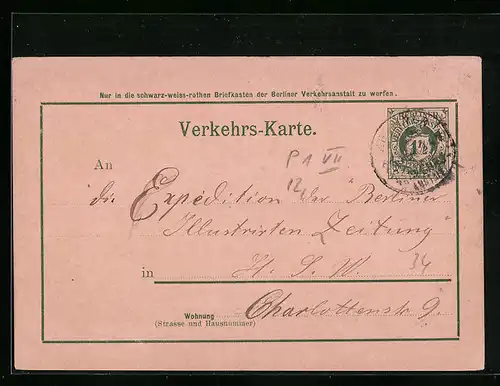 Nur in die schwarz-weiss-rothen Briefkasten der Berliner Verkehrsanstalt zu werfen.
Verkehrs-Karte.
P 1 VII
12,
An
die Expedition der "Berliner
Illustristen Zeitung"
in H. S. W. 34
Wohnung
(Strasse und Hausnummer)
Charlottenstr 9.